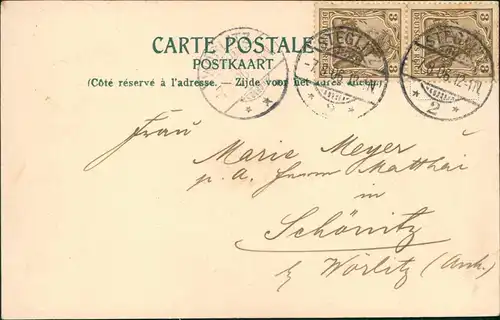 CARTE POSTALE
POSTKAART
(Côté réservé à l'adresse. — Zijde voor het adres
3 3
DEUTSCHES REICH
STEGLITZ
* 2 *
Frau
Marie Meyer
p. a. Herrn Matthäi
in
Schönitz
b/ Wörlitz (Anh.)